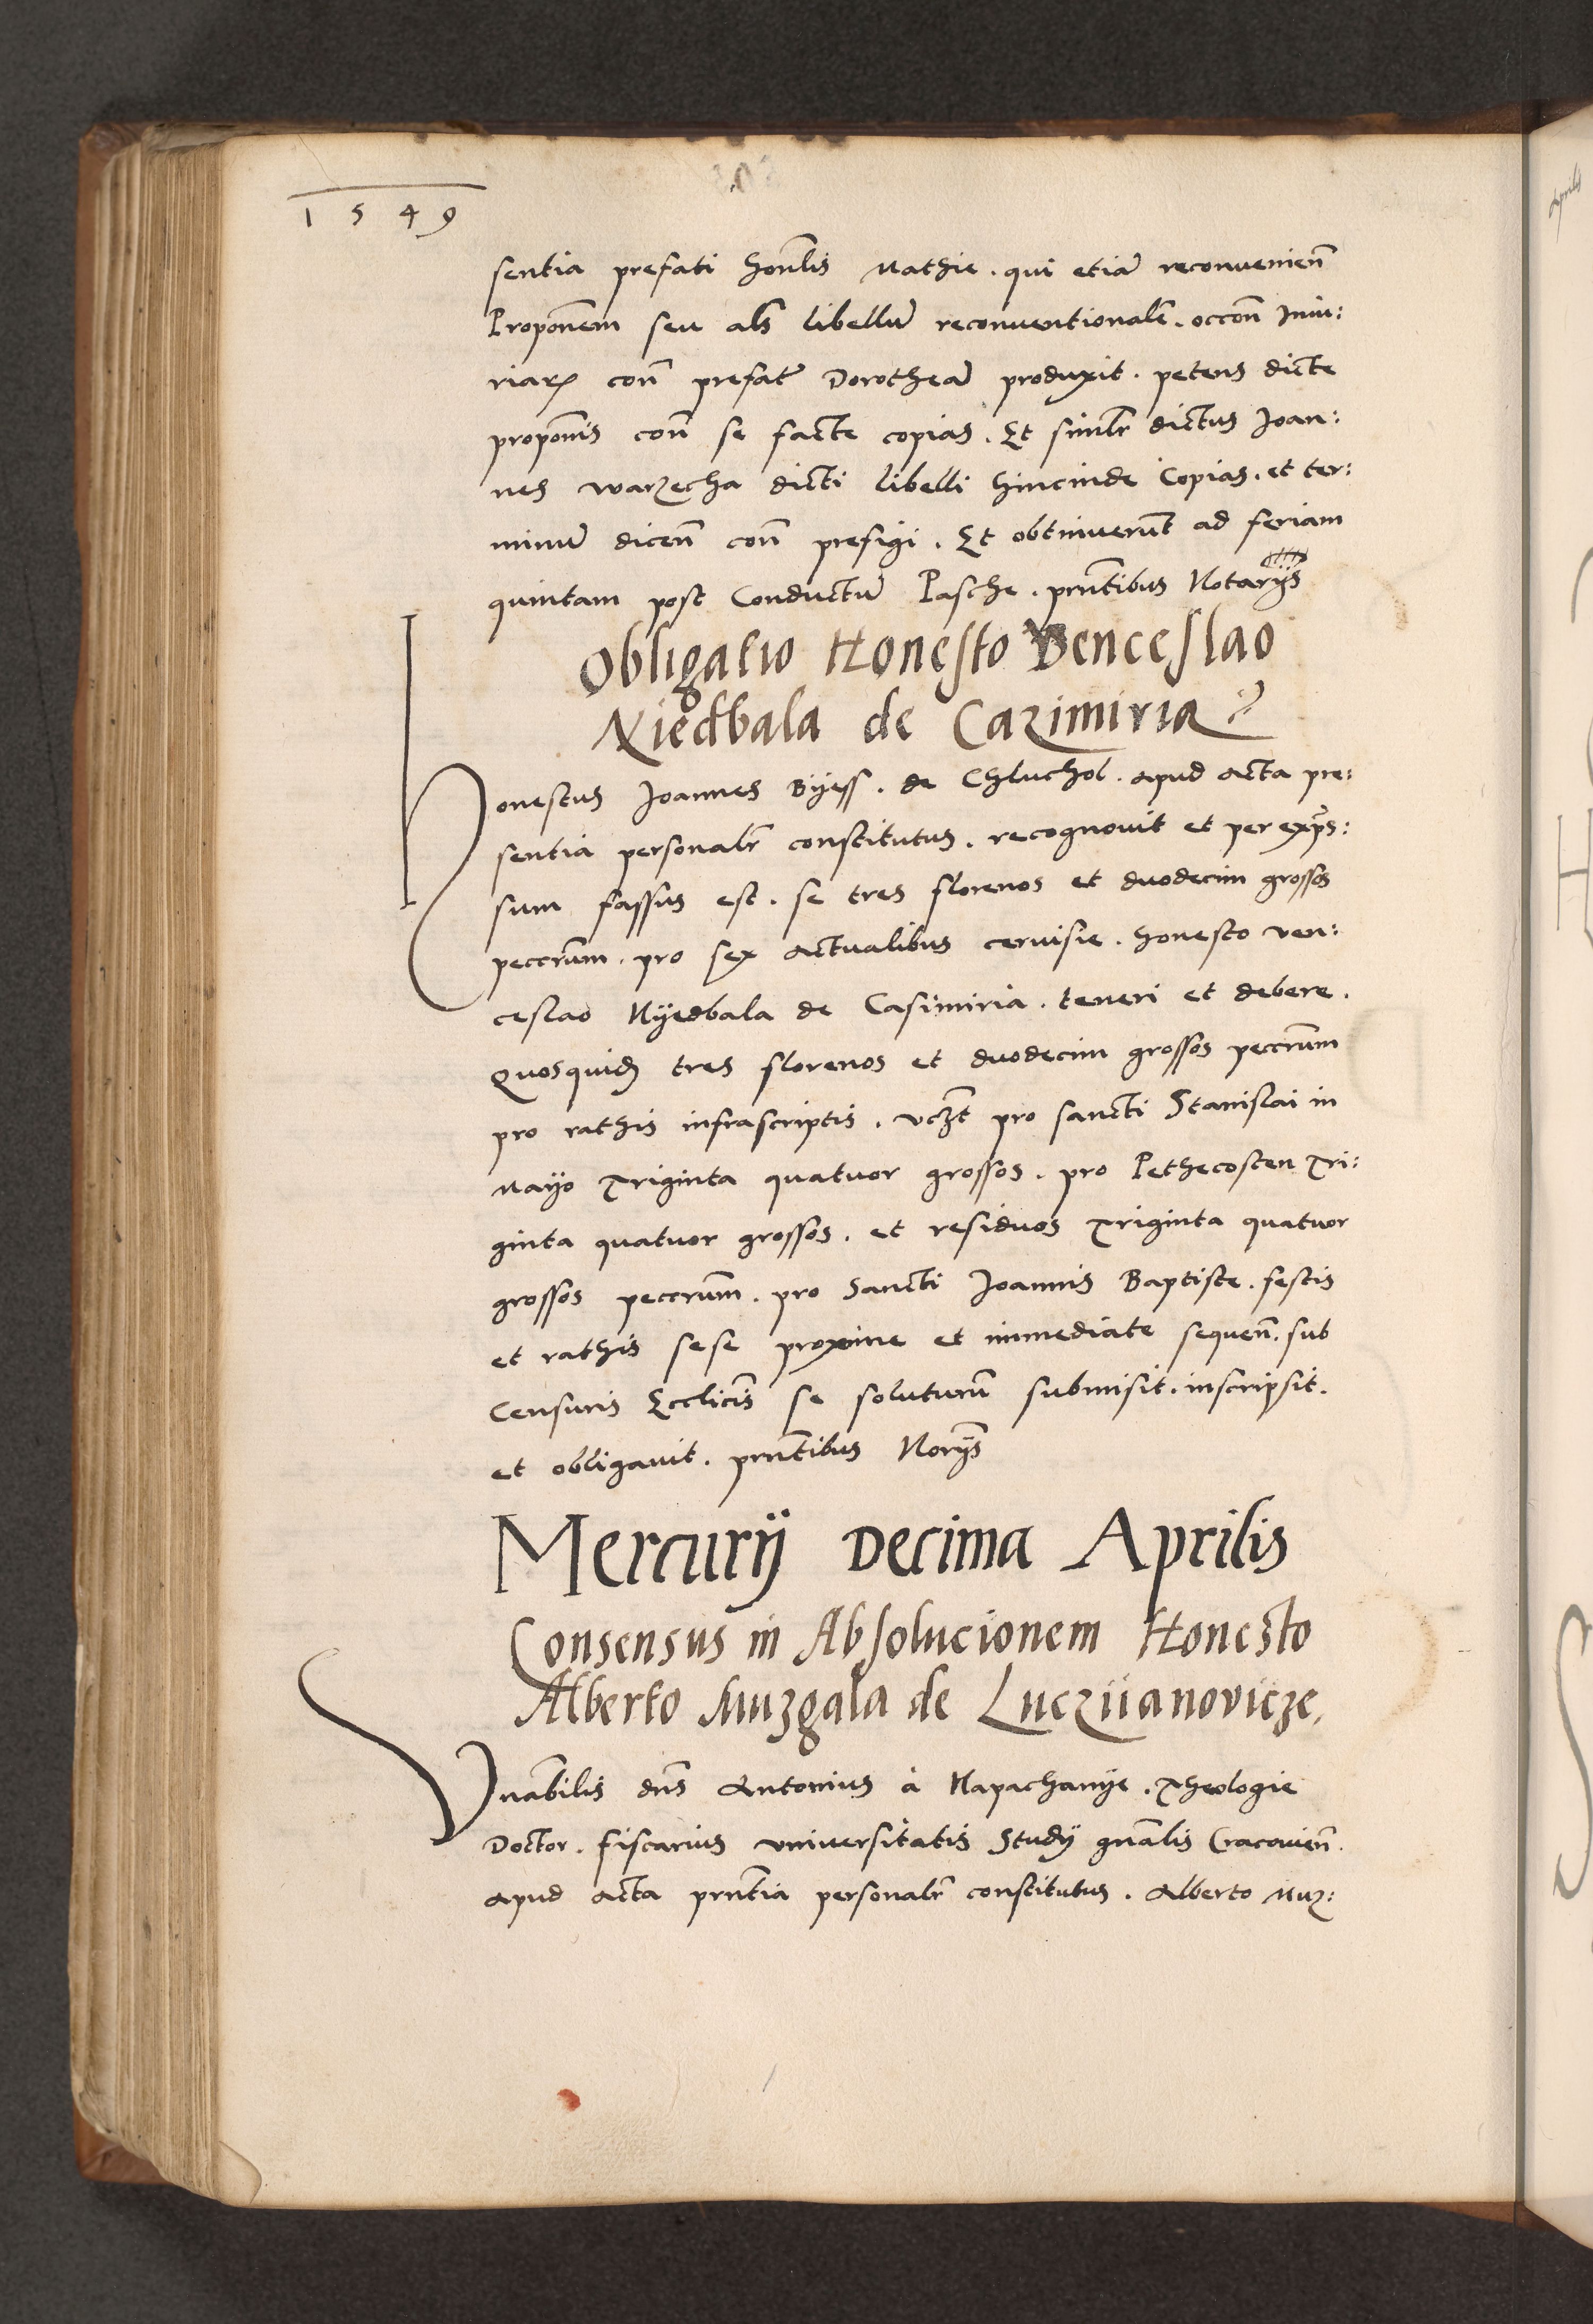 1549
sentia prefati hon̄lis Mathie . qui etiā reconvenien̄
Propon̄em seu al̄s libellū reconventionalē . occon̄ Iniu:
riarꝝ con̄ prefatā Dorotheā produxit . petens dicte
propon̄is con̄ se facte copias . Et simil̄r dictus Joan:
nes warzecha dicti libelli hincinde Copias . et ter:
minū dicen̄ con̄ prefigi . Et obtinuerūt ad feriam
quintam post Conductū Pasche . prn̄tibus Notarijs
Obligatio Honesto Venceslao
Niedbala de Cazimiria
Honestus Joannes Bijess . de Chluchol . apud acta pre:
sentia personal̄r constitutus . recognouit et per exp̄s:
sum fassus est . se tres florenos et duodecim grossos
peccrūm . pro sex actualibus ceruisie . honesto ven:
ceslao Nijedbala de Casimiria . teneri et debere .
Quosquid̄ tres florenos et duodecim grossos peccrūm
pro rathis infrascriptis . vcꝫt pro sancti Stanislai in
Mayo Triginta quatuor grossos . pro Pethecosten Tri:
ginta quatuor grossos . et residuos Triginta quatuor
grossos peccrūm . pro Sancti Joannis Baptiste . festis
et rathis sese proxime et immediate sequen̄ . sub
Censuris Ecclīcis se soluturū submisit . inscripsit .
et obligauit . prn̄tibus Norijs
Mercurij Decima Aprilis
Consensus in Absolucionem Honesto
Alberto Muzgala de Luczÿanovicze,
Vn̄abilis dn̄s Antonius à Napachanije . Theologie
Doctor . fiscarius universitatis Studij gn̄alis Cracouien̄ .
apud acta prn̄tia personal̄r constitutus . Alberto Muz: